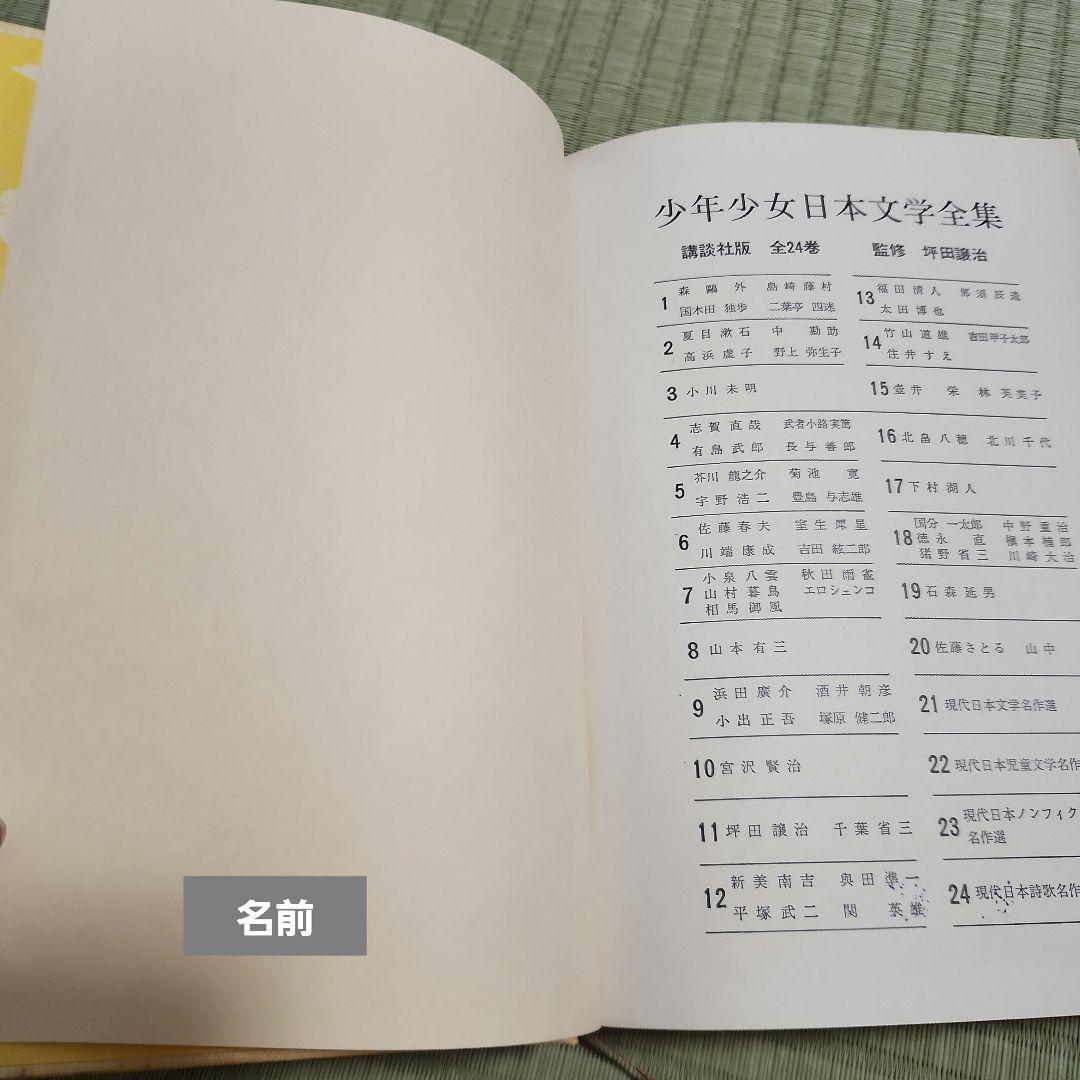 少年少女日本文学全集
講談社版 全24巻 監修 坪田譲治
1 森鷗外 島崎藤村
国木田独歩 二葉亭四迷
2 夏目漱石 中勘助
高浜虚子 野上弥生子
3 小川未明
4 志賀直哉 武者小路実篤
有島武郎 長与善郎
5 芥川龍之介 菊池寛
宇野浩二 豊島与志雄
6 佐藤春夫 室生犀星
川端康成 吉田絃二郎
7 小泉八雲 秋田雨雀
山村暮鳥 エロシェンコ
相馬御風
8 山本有三
9 浜田廣介 酒井朝彦
小出正吾 塚原健二郎
10 宮沢賢治
11 坪田譲治 千葉省三
12 新美南吉 與田凖一
平塚武二 関英雄
13 福田清人 那須辰造
太田博也
14 竹山道雄 吉田甲子太郎
住井すえ
15 壺井栄 林芙美子
16 北畠八穂 北川千代
17 下村湖人
18 国分一太郎 中野重治
徳永直 槇本楠郎
猪野省三 川崎大治
19 石森延男
20 佐藤さとる 山中
21 現代日本文学名作選
22 現代日本児童文学名作
23 現代日本ノンフィク
名作選
24 現代日本詩歌名作
名前